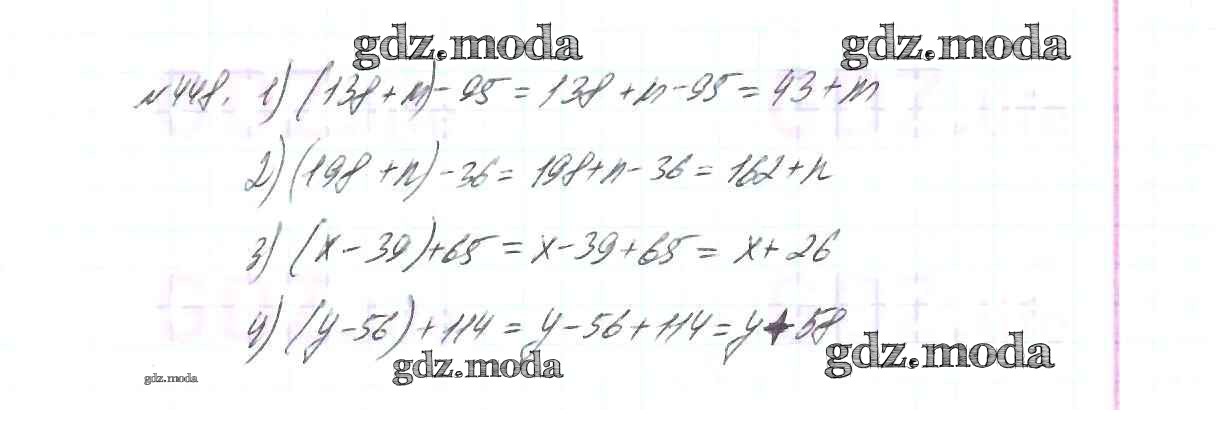 gdz.moda gdz.moda
№448. 1) (138+m)-95=138+m-95=43+m
2) (198+n)-36=198+n-36=162+n
3) (x-39)+65=x-39+65=x+26
4) (y-56)+114=y-56+114=y+58
gdz.moda gdz.moda gdz.moda